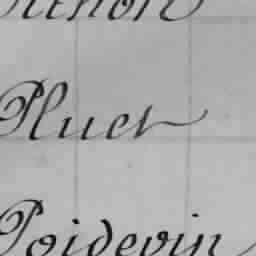 Pluet
Poidevin